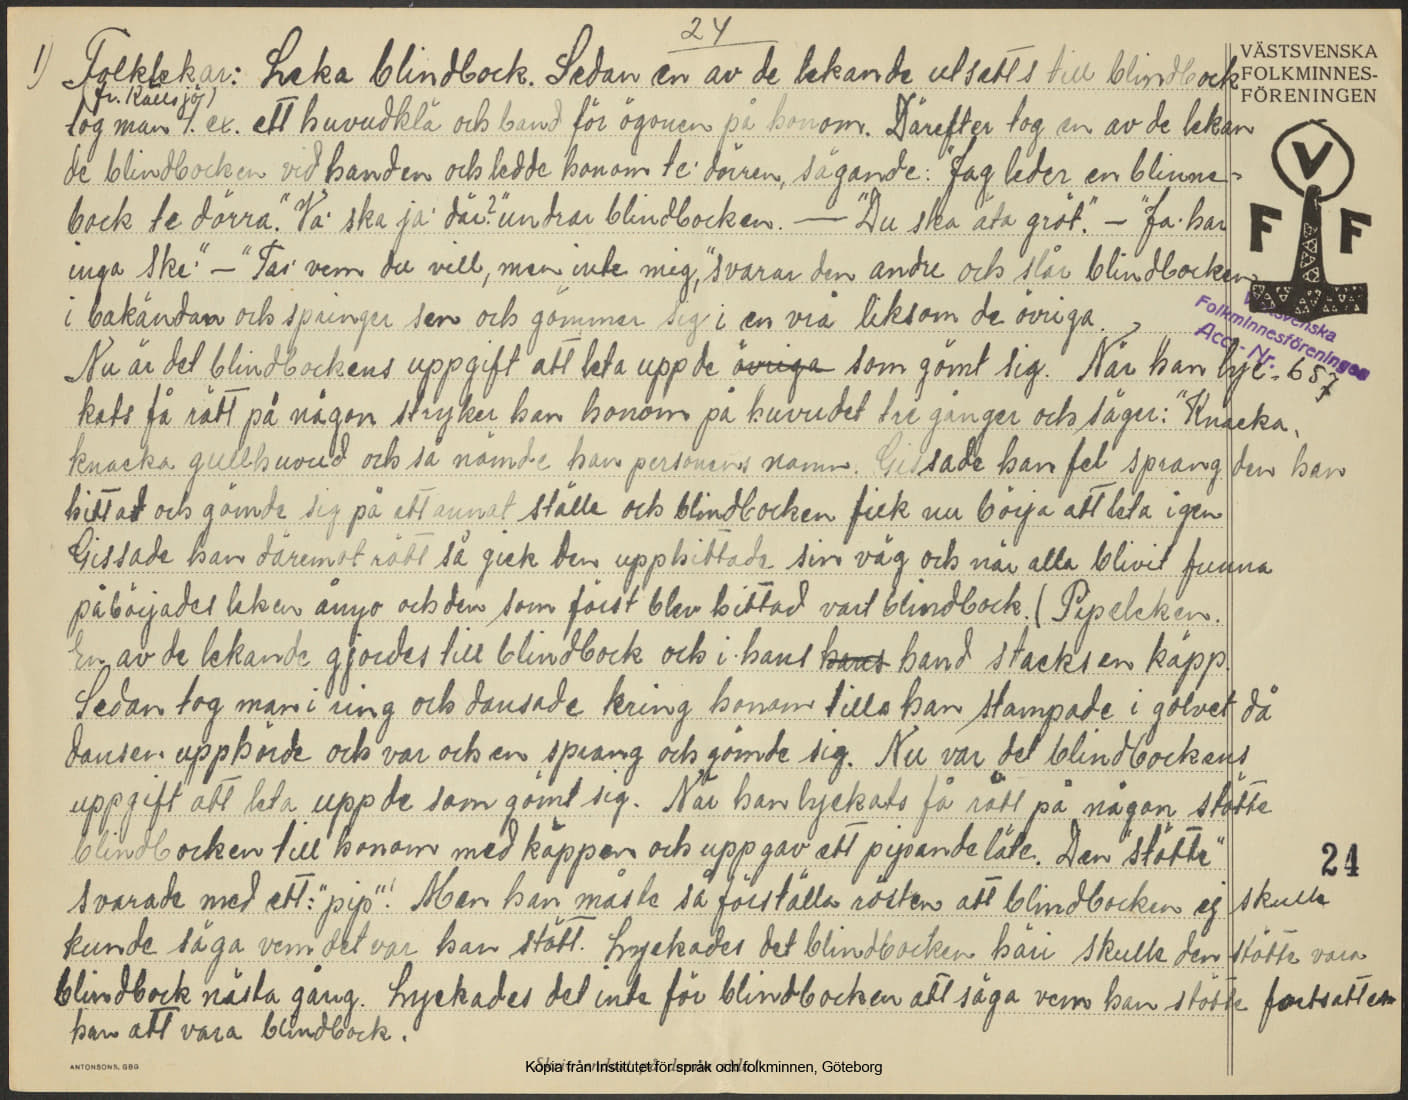 24
1) Folklekar: Leka blindbock. Sedan en av de lekande utsetts till blindbock
(fr. Källsjö)
tog man t. ex. ett huvudklä och band för ögonen på honom. Därefter tog en av de lekan
de blindbocken vid handen och ledde honom te' dörren, sägande: "Jag leder en blinne-
bock te dörra." "Va' ska ja' där?" undrar blindbocken. — "Du ska äta gröt." – "Ja' har
inga ske'" – "Ta' vem du vill, men inte mig," svarar den andre och slår blindbocken
i bakändan och springer sen och gömmer sig i en vrå liksom de övriga.
Nu är det blindbockens uppgift att leta upp de övriga som gömt sig. När han lyc-
kats få rätt på någon stryker han honom på huvudet tre gånger och säger: "Knacka,
knacka gullhuvud och så nämnde han personens namn. Gissade han fel sprang den han
hittat och gömde sig på ett annat ställe och blindbocken fick nu börja att leta igen
Gissade han däremot rätt så gick den upphittade sin väg och när alla blivit funna
påbörjades leken ånyo och den som först blev hittad vart blindbock. (Pipeleken.
En av de lekande gjordes till blindbock och i hans hans hand stacks en käpp.
Sedan tog man i ring och dansade kring honom tills han stampade i golvet då
dansen upphörde och var och en sprang och gömde sig. Nu var det blindbockens
uppgift att leta upp de som gömt sig. När han lyckats få rätt på någon stötte
blindbocken till honom med käppen och uppgav ett pipande läte. Den "stötte"
svarade med ett: "pip"! Men han måste så förställa rösten att blindbocken ej skulle
kunde säga vem det var han stött. Lyckades det blindbocken häri skulle den stötte vara
blindbock nästa gång. Lyckades det inte för blindbocken att säga vem han stötte fortsatte
han att vara blindbock.
VÄSTSVENSKA
FOLKMINNES-
FÖRENINGEN
V
F F
Västsvenska
Folkminnesföreningen
Acc.-Nr. 657
24
ANTONSONS, GBG
Kopia från Institutet för språk och folkminnen, Göteborg